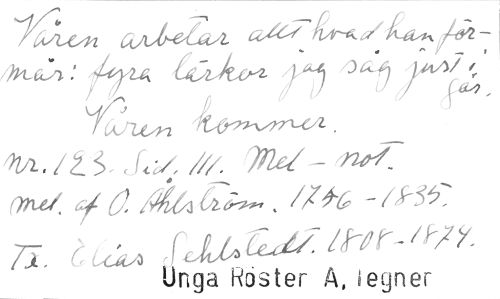 Våren arbetar allt hvad han för-
mår: fyra lärkor jag såg just i
går.
Våren kommer.
nr. 123. Sid. 111. Mel - not.
mel. af O. Åhlström. 1756 - 1835.
Tx. Elias Sehlstedt. 1808 - 1874.
Unga Röster A, Tegner